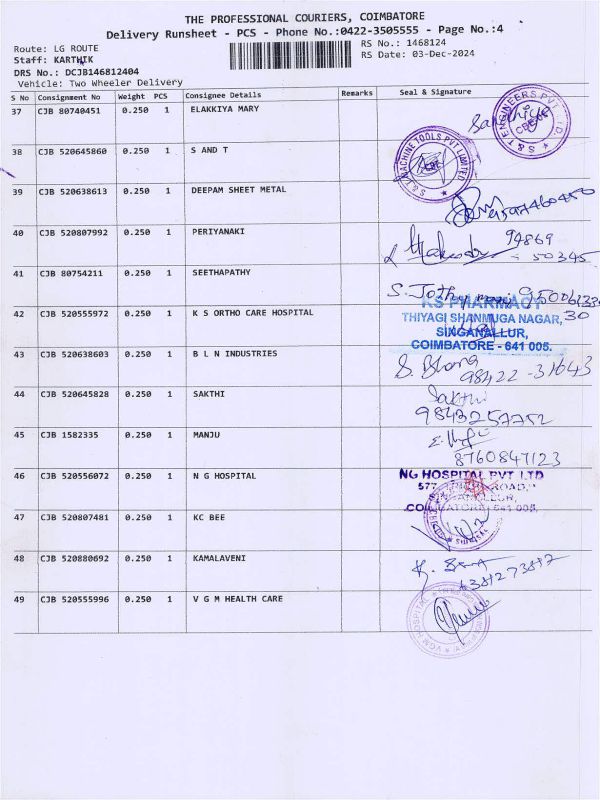 THE PROFESSIONAL COURIERS, COIMBATORE
Delivery Runsheet - PCS - Phone No.:0422-3505555 - Page No.:4
Route: LG ROUTE
RS No.: 1468124
Staff: KARTHIK
RS Date: 03-Dec-2024
DRS No.: DCJB146812404
Vehicle: Two Wheeler Delivery
S No Consignment No Weight PCS Consignee Details Remarks Seal & Signature
37 CJB 80740451 0.250 1 ELAKKIYA MARY
S & T ENGINEERS PVT. LTD.
CBE
38 CJB 520645860 0.250 1 S AND T
S & T MACHINE TOOLS PVT LIMITED
CBE
39 CJB 520638613 0.250 1 DEEPAM SHEET METAL
40 CJB 520807992 0.250 1 PERIYANAKI
94869
50345
41 CJB 80754211 0.250 1 SEETHAPATHY
S. Jothy
42 CJB 520555972 0.250 1 K S ORTHO CARE HOSPITAL
KS PHARMACY
THIYAGI SHANMUGA NAGAR,
30
SINGANALLUR,
COIMBATORE - 641 005.
43 CJB 520638603 0.250 1 B L N INDUSTRIES
98422 - 31643
44 CJB 520645828 0.250 1 SAKTHI
Sakthi
9843257752
45 CJB 1582335 0.250 1 MANJU
8760847123
46 CJB 520556072 0.250 1 N G HOSPITAL
NG HOSPITAL PVT LTD
577, ROAD,
SINGANALLUR,
COIMBATORE 641 005.
47 CJB 520807481 0.250 1 KC BEE
48 CJB 520880692 0.250 1 KAMALAVENI
49 CJB 520555996 0.250 1 V G M HEALTH CARE
VGM HOSPITAL